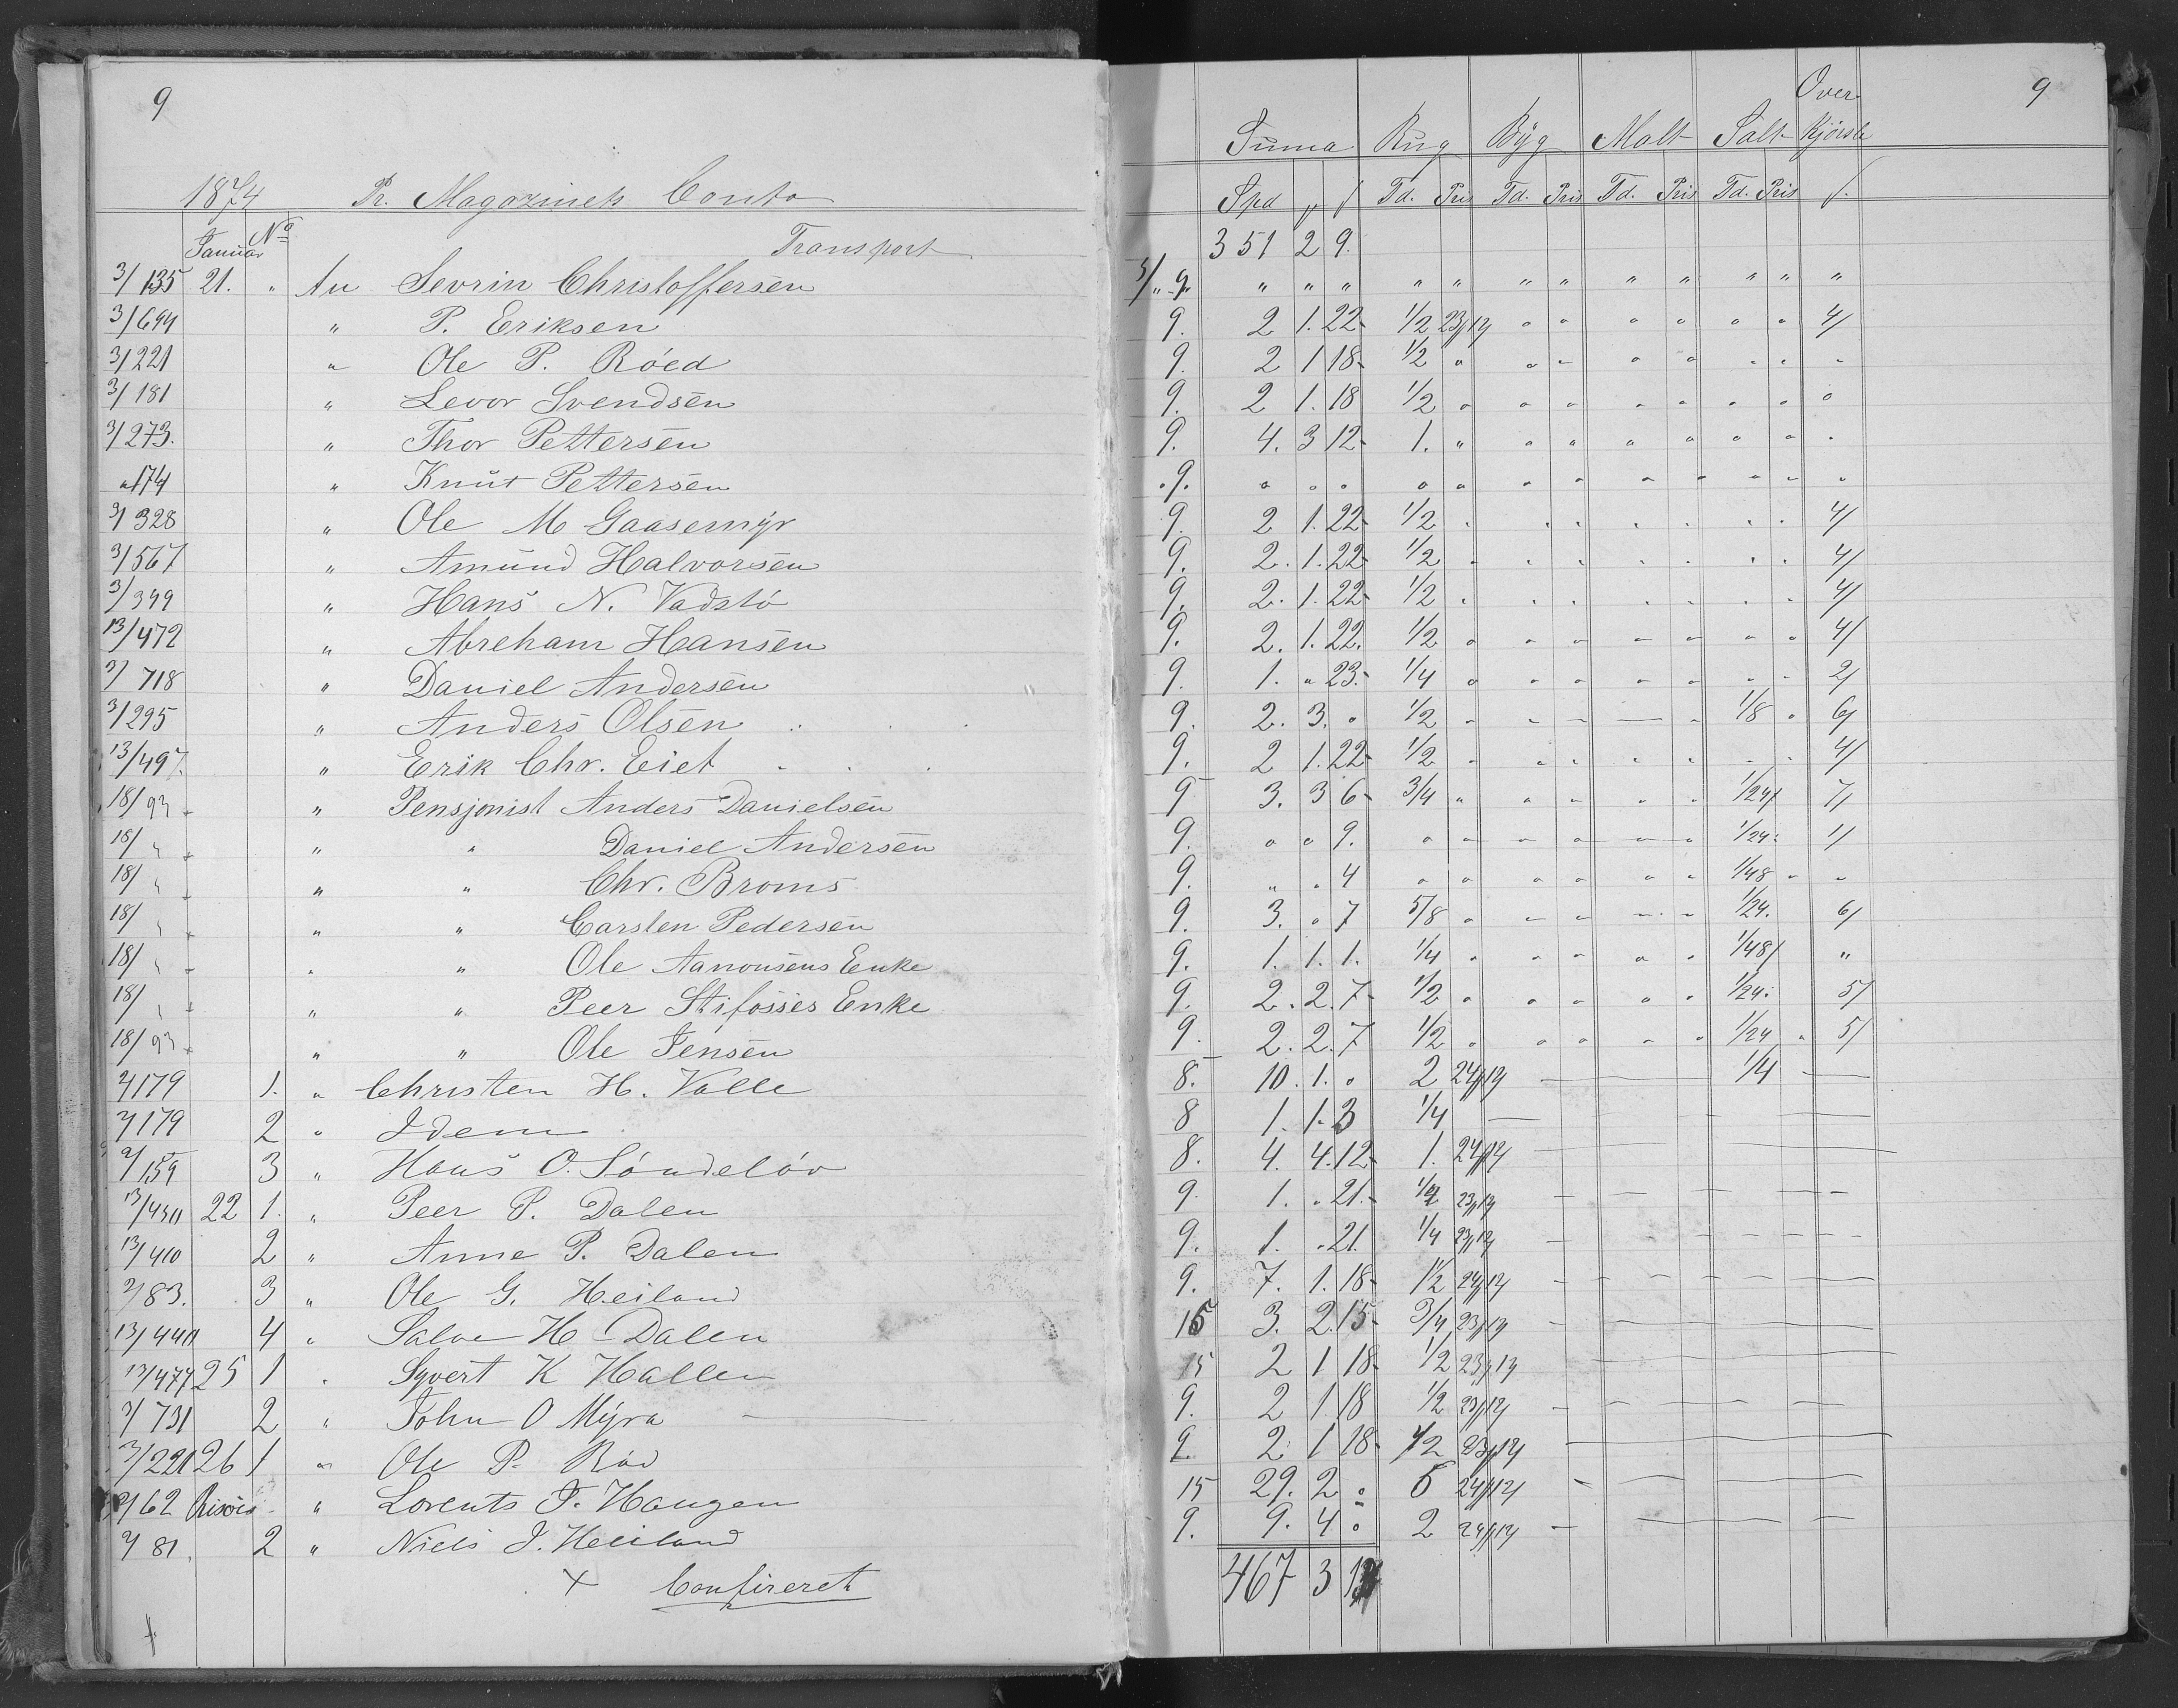 9
1874 Pr. Magazinets Conto
Januar No Transport
3/135 21. " An Sevrin Christoffersen
3/694 " P. Eriksen
3/221 " Ole P. Röed
3/181 " Levor Svendsen
3/273. " Thor Pettersen
" 174 " Knut Pettersen
3/328 " Ole M Gaasemyr
3/567 " Amund Halvorsen
3/349 " Hans N. Vadstö
13/472 " Abreham Hansen
3/718 " Daniel Andersen
3/295 " Anders Olsen
13/497. " Erik Chr. Eiet
18/93 " Pensjonist Anders Danielsen
18/ " " " Daniel Andersen
18/ " " " Chr. Broms
18/ " " " Carsten Pedersen
18/ " " " Ole Aanonsens Enke
18/ " " " Peer Stifosses Enke
18/93 " " Ole Jensen
2/179 1. " Christen H. Valle
2/179 2 " Idem
2/159 3 " Hans O. Söndelöv
13/450 22 1. " Peer P. Dalen
13/410 2 " Anne P. Dalen
2/83. 3 " Ole G. Heiland
13/440 4 " Salve H. Dalen
13/477 25 1 " Syvert K Hallen
3/731 2 " John O Myra
3/221 26 1 " Ole P. Röd
2/62 Risöer " Lorents J. Haugen
2/81. 2 " Niels J. Heiland
+ Confireret
9
Over
Suma Rug Byg Malt Salt kjörsle
Spd Td. Pris Td. Pris Td. Pris Td. Pris
351 2 9.
9 " " " " " " " " " " " "
9. 2 1. 22 1/2 23/12 " " " " " " 4/
9. 2 1 18 1/2 " " " " " " " "
9. 2 1. 18 1/2 " " " " " " " "
9. 4. 3 12 1. " " " " " " " "
9. " " " " " " " " " " " "
9. 2 1. 22 1/2 " " " " " " 4/
9. 2. 1. 22 1/2 " " " " " " " 4/
9. 2. 1. 22 1/2 " " " " " " " 4/
9. 2. 1. 22. 1/2 " " " " " " " 4/
9. 1. " 23. 1/4 " " " " " " " 2/
9. 2. 3. " 1/2 " " " " " 1/8 " 6/
9. 2 1. 22 1/2 " " " " " " " 4/
9 3. 3 6 3/4 " " " " " 1/24 7/
9. " " 9. " " " " " " 1/24 1/
9. " " 4 " " " " " " 1/48 " "
9. 3. " 7 5/8 " " " " " 1/24. 6/
9. 1. 1. 1. 1/4 " " " " " 1/48 "
9. 2. 2. 7 1/2 " " " " " 1/24 5/
9. 2. 2. 7 1/2 " " " " " 1/24 " 5/
8. 10. 1. " 2 24/12 — 1/4 —
8 1. 1. 3 1/4 —
8. 4. 4. 12 1. 24/12 —
9. 1. " 21. 1/4 23/12 —
9. 1. " 21. 1/4 23/12 —
9. 7. 1. 18 1 1/2 24/12 —
15 3. 2. 15 3/4 23/12 —
15 2 1 18 1/2 23/12 —
9. 2 1. 18 1/2 23/12 —
9. 2 1 18 1/2 23/12 —
15 29. 2 " 6 24/12 —
9. 9. 4 " 2 24/12 —
467 3